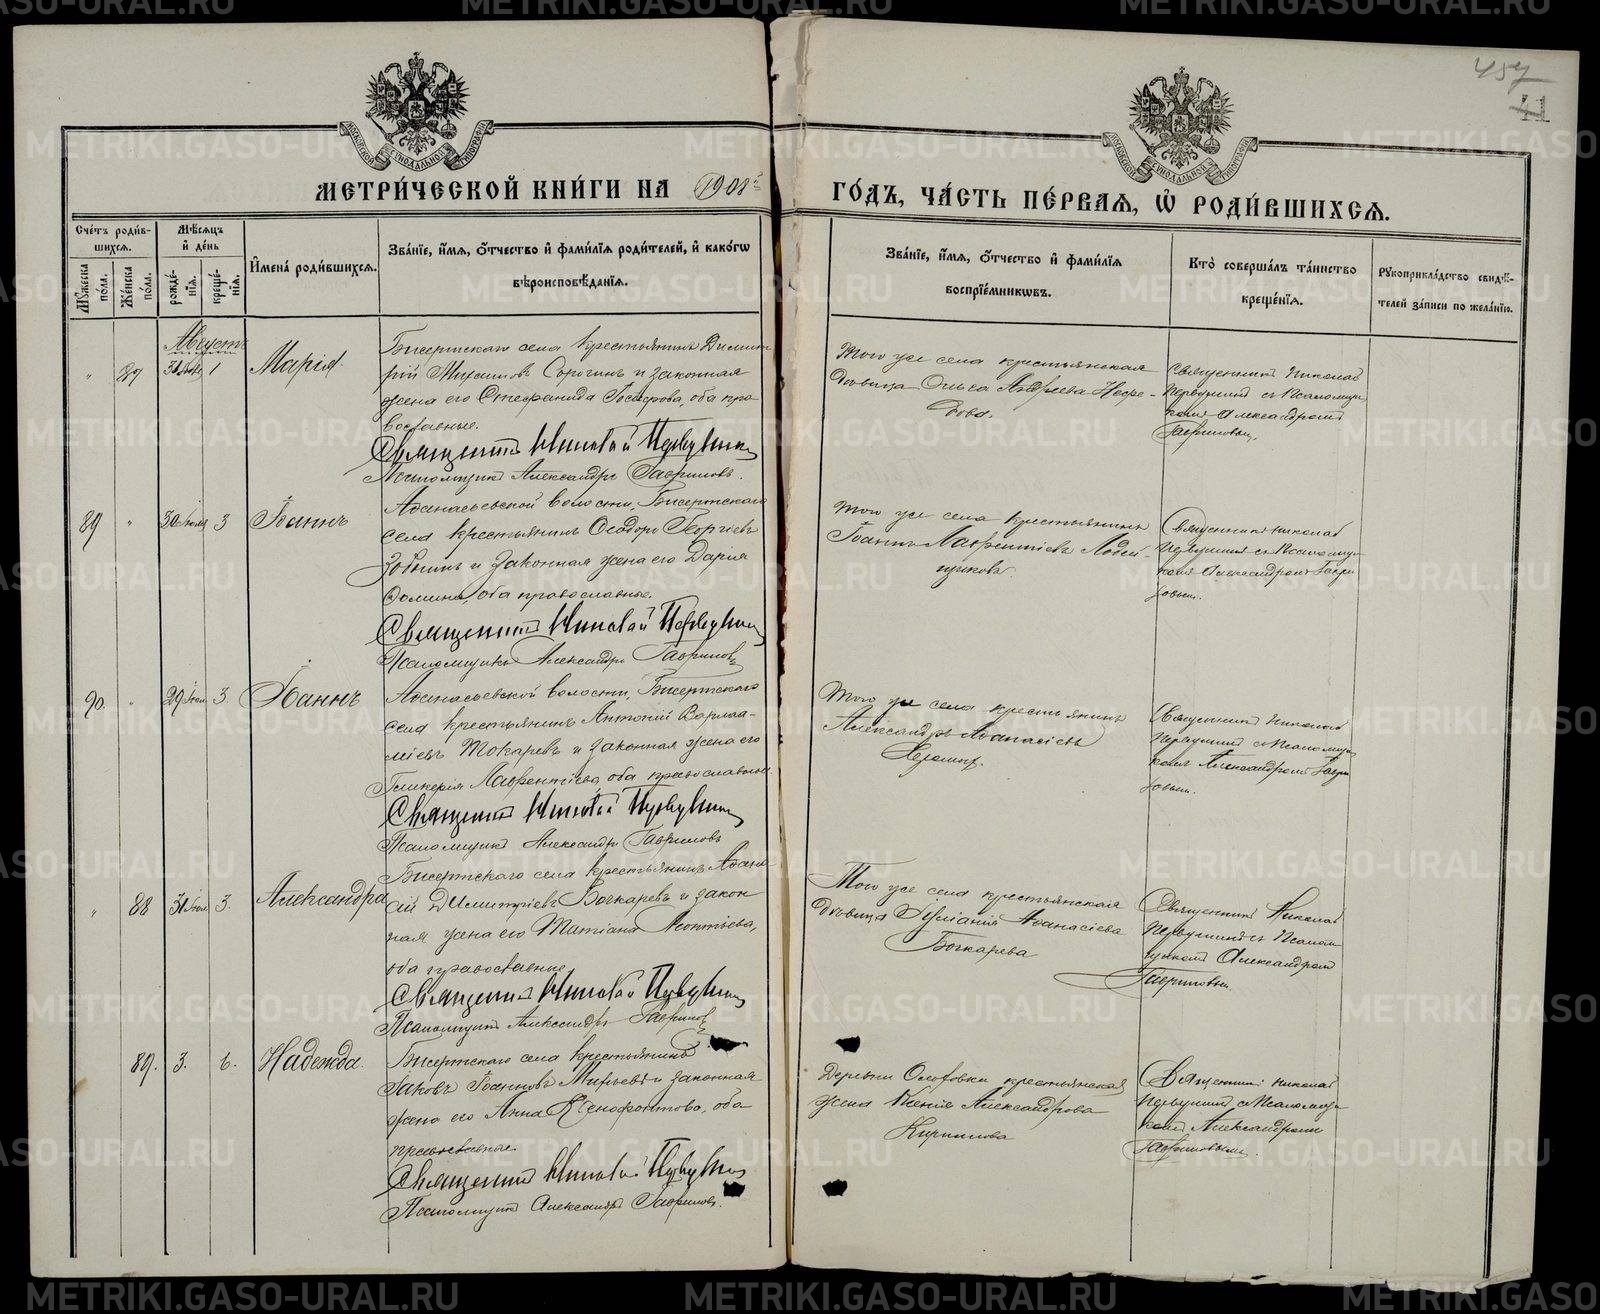 457
41
МОСКОВСКОЙ СѴНОДАЛЬНОЙ ТИПОГРАФІИ
МОСКОВСКОЙ СѴНОДАЛЬНОЙ ТИПОГРАФІИ
МЕТРИ́ЧЕСКОЙ КНИ́ГИ НА 1908й
ГО́ДЪ, ЧА́СТЬ ПЕ́РВАѦ, Ѽ РОДИ́ВШИХСѦ.
Сче́тъ роди́в-
шихсѧ.
Мѣ́сѧцъ
и҆ де́нь
Мꙋ́жеска по́ла.
Же́нска по́ла.
рожде́-
нїѧ.
креще́-
нїѧ.
И҆мена̀ роди́вшихсѧ.
Зва́нїе, и҆́мѧ, ѻ҆́тчество и҆ фами́лїѧ роди́телей, и҆ како́гѡ
вѣроисповѣ́данїѧ.
Зва́нїе, и҆́мѧ, ѻ҆́тчество и҆ фами́лїѧ
воспрїе́мникѡвъ.
Кто̀ соверша́лъ та́инство
креще́нїѧ.
Рꙋкоприкла́дство свидѣ́-
телей за́писи по жела́нїю.
Августъ
" 87 31 Іюля 1 Марія.
Бисертскаго села крестьянинъ Димит-
рій Михаиловъ Сорогинъ и законная
жена его Стефанида Іосифова, оба пра-
вославные.
Священникъ Николай Первушинъ
Псаломщикъ Александръ Гавриловъ.
Того же села крестьянская
дѣвица Ольга Андреева Нефе-
дова.
Священникъ Николай
Первушинъ съ Псаломщи-
комъ Александромъ
Гавриловым.
89 " 30 Іюля 3 Іоаннъ
Аѳанасьевской волости, Бисертскаго
села крестьянинъ Ѳеодоръ Георгіевъ
Зобнинъ и законная жена его Дарія
Ѳомина, оба православные.
Священникъ Николай Первушинъ
Псаломщикъ Александръ Гавриловъ
Того же села крестьянинъ
Іоаннъ Лаврентіевъ Лодей-
щиковъ.
Священникъ Николай
Первушинъ съ Псаломщи-
комъ Александромъ Гаври-
ловым.
90. " 29 Іюля 3. Іоаннъ
Аѳанасьевской волости, Бисертскаго
села крестьянинъ Антоній Варлаа-
міевъ Токаревъ и законная жена его
Гликерія Лаврентіева, оба православные.
Священникъ Николай Первушинъ
Псаломщикъ Александръ Гавриловъ
Того же села крестьянинъ
Александръ Аѳанасіевъ
Священникъ Николай
Первушинъ съ Псаломщи-
комъ Александромъ Гаври-
ловым.
" 88 31 Іюля 3. Александра
Бисертскаго села крестьянинъ Аѳана-
сій Димитріевъ Бочкаревъ и закон-
ная жена его Татіана Леонтьева,
оба православные.
Священникъ Николай Первушинъ
Псаломщикъ Александръ Гавриловъ
Того же села крестьянская
дѣвица Іуліанія Аѳанасіева
Бочкарева
Священникъ Николай
Первушинъ съ Псалом-
щикомъ Александромъ
Гавриловым.
89. 3. 6. Надежда.
Бисертскаго села крестьянинъ
Іаковъ Іоанновъ и законная
жена его Анна Ксенофонтова, оба
православные.
Священникъ Николай Первушинъ
Псаломщикъ Александръ Гавриловъ.
Деревни крестьянская
жена Ксенія Александрова
Кирилова
Священникъ Николай
Первушинъ съ Псаломщи-
комъ Александромъ
Гавриловымъ.
METRIKI.GASO-URAL.RU